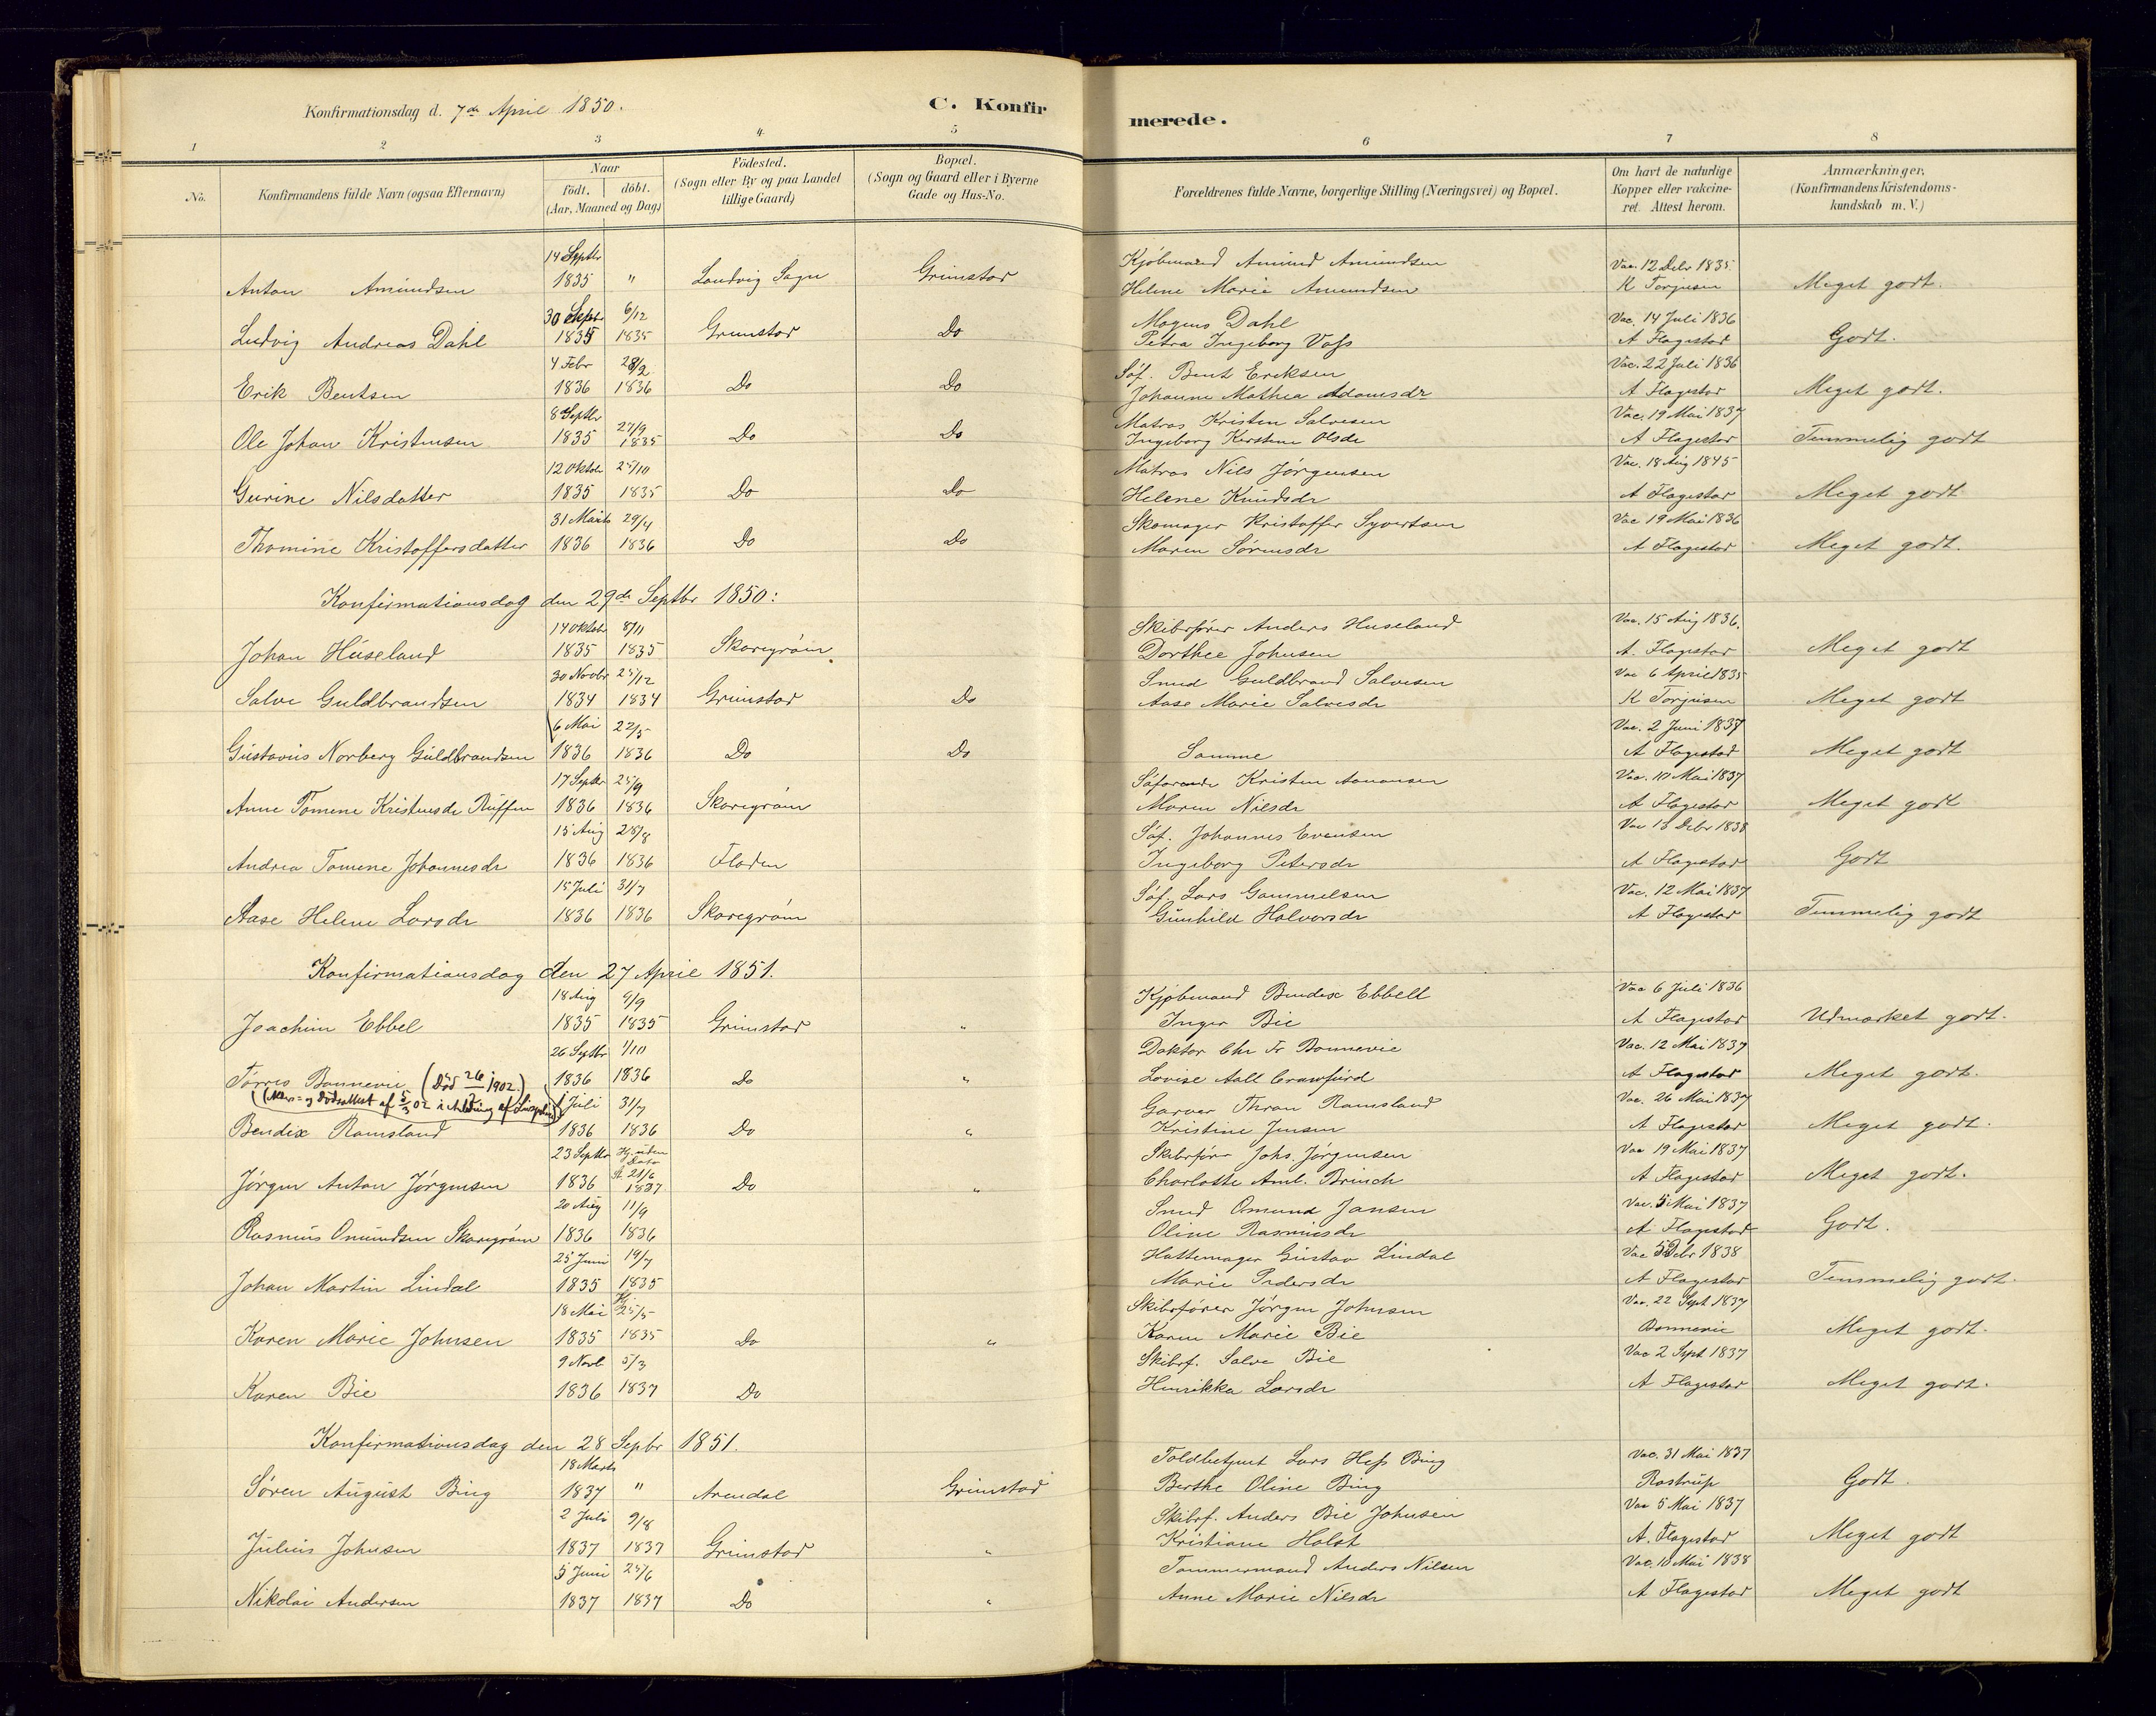 Konfirmationsdag d. 7de April 1850. C. Konfirmerede.
1 2 3 4 5 6 7 8
No. Konfirmandens fulde Navn (ogsaa Efternavn) Naar født. døbt. (Aar, Maaned og Dag) Födested. (Sogn eller By og paa Landet lillige Gaard) Bopæl. (Sogn og Gaard eller i Byerne Gade og Hus-No. Forældrenes fulde Navne, borgerlige Stilling (Næringsvei) og Bopæl. Om havt de naturlige Kopper eller vakcineret. Attest herom. Anmærkninger, (Konfirmandens Kristendomskundskab m. V.)
14 Septbr Kjøbmand Amund Amundsen Vac. 12 Debr 1835.
Anton Amundsen 1835 " Landvig Sogn Grimstad Helene Marie Amundsen K Torjusen Meget godt.
30 Septbr 6/12 Mogens Dahl Vac. 14 Juli 1836
Ludvig Andreas Dahl 1835 1835 Grimstad Do Petra Ingeborg Voss A Flagestad Godt.
4 Febr 28/2 Søf. Bent Eriksen Vac. 22 Juli 1836
Erik Bentsen 1836 1836 Do Do Johanne Mathea Adamsdr A Flagestad Meget godt.
8 Septbr 27/9 Matros Kristen Salvesen Vac. 19 Mai 1837
Ole Johan Kristensen 1835 1835 Do Do Ingeborg Kirstine Olsdr A Flagestad Temmelig godt
12 Oktobr 25/10 Matros Nils Jørgensen Vac. 18 Aug 1845
Gurine Nilsdatter 1835 1835 Do Do Helene Knudsdr A Flagestad Meget godt
31 Marts 29/4 Skomager Kristoffer Syvertsen Vac 19 Mai 1836
Thomine Kristoffersdatter 1836 1836 Do Do Maren Sørensdr A Flagestad Meget godt.
Konfirmationsdag den 29de Septbr 1850:
14 Oktobr 8/11 Skibsfører Anders Huseland Vac. 15 Aug 1836.
Johan Huseland 1835 1835 Skaregrøm Dorthee Johnsen A. Flagestad Meget godt
30 Novbr 25/12 Smed Guldbrand Salvesen Vac 6 April 1835
Salve Guldbrandsen 1834 1834 Grimstad Do Aase Marie Salvesdr K Torjusen Meget godt
6 Mai 22/5 Vac. 2 Juni 1837
Gustavus Norberg Guldbrandsen 1836 1836 Do Do Samme A Flagestad Meget godt
17 Septbr 25/9 Søfarende Kristen Aanonsen Vac. 10 Mai 1837
Anne Tomine Kristensdr Ruffen 1836 1836 Skaregrøm Maren Nilsdr A Flagestad Meget godt
15 Aug 28/8 Søf. Johannes Evensen Vac 15 Debr 1838
Andrea Tomine Johannesdr 1836 1836 Fladen Ingeborg Petersdr A Flagestad Godt
15 Juli 31/7 Søf Lars Gammelsen Vac. 12 Mai 1837
Aase Helene Larsdr 1836 1836 Skaregrøm Gunhild Halvorsdr A Flagestad Temmelig godt
Konfirmationsdag den 27 April 1851.
18 Aug 9/9 Kjøbmand Bendix Ebbell Vac 6 Juli 1836
Joachim Ebbel 1835 1835 Grimstad " Inger Bie A Flagestad Udmærket godt.
26 Septbr 1/10 Doktor Chr Fr Bonnevie Vac. 12 Mai 1837
Tørres Bonnevie (Død 26/2 1902.) 1836 1836 Do " Lovise Aall Crawfurd A Flagestad Meget godt.
Juli 31/7 Garver Thron Ramsland Vac. 26 Mai 1837
Bendix Ramsland 1836 1836 Do " Kristine Jensen A Flagestad Meget godt.
23 Septbr Hj. uden Dato Skibsfører Johs. Jørgensen Vac 19 Mai 1837
Jørgen Anton Jørgensen 1836 21/6 1837 Do " Charlotte Aml. Brinch A Flagestad Meget godt.
20 Aug 11/9 Smed Omund Jansen Vac. 5 Mai 1837
Rasmus Omundsen Skaregrøm 1836 1836 Oline Rasmusdr A Flagestad Godt.
25 Juni 19/7 Hattemager Gustav Lindal Vac 5 Debr 1838
Johan Martin Lindal 1835 1835 Marie Pedersdr A Flagestad Temmelig godt.
18 Mai Hj. 25/5 Skibsfører Jørgen Johnsen Vac. 22 Sept 1837
Karen Marie Johnsen 1835 1835 Do " Karen Marie Bie Bonnevie Meget godt.
9 Novb 5/3 Skibsf. Salve Bie Vac 2 Sept 1837
Karen Bie 1836 1837 Do Henrikka Larsdr A Flagestad Meget godt.
Konfirmationsdag den 28 Sepbr 1851.
18 Marts Toldbetjent Lars Hess Bing Vac. 31 Mai 1837
Søren August Bing 1837 " Arendal Grimstad Berthe Oline Bing Rostrup Godt.
2 Juli 9/8 Skibsf. Anders Bie Johnsen Vac 5 Mai 1837
Julius Johnsen 1837 1837 Grimstad " Kristiane Holst A. Flagestad Meget godt
5 Juni 25/6 Tømmermand Anders Nilsen Vac. 10 Mai 1838
Nikolai Andersen 1837 1837 Do " Anne Marie Nilsdr A Flagestad Meget godt